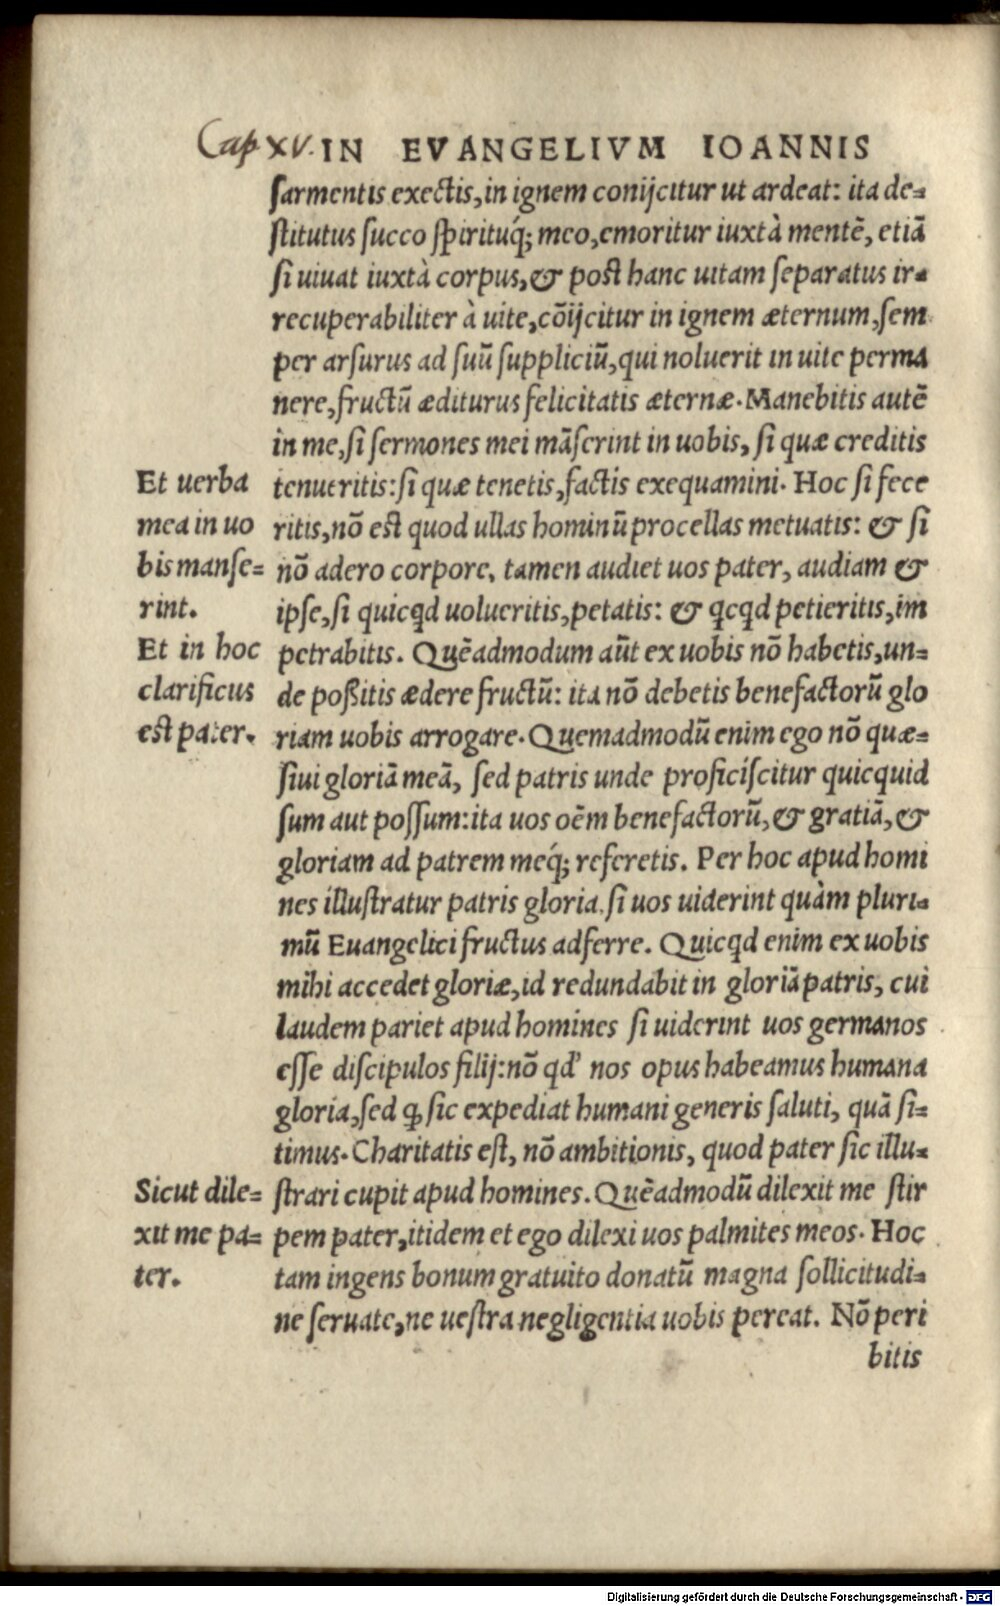 Cap XV. IN EVANGELIVM IOANNIS
sarmentis exectis, in ignem conijcitur ut ardeat: ita de=
stitutus succo spirituq́; meo, emoritur iuxtà mentē, etiā
si uiuat iuxtà corpus, & post hanc uitam separatus ir=
recuperabiliter à uite, cōijcitur in ignem æternum, sem
per arsurus ad suū suppliciū, qui noluerit in uite perma
nere, fructū æditurus felicitatis æternæ. Manebitis autē
in me, si sermones mei māserint in uobis, si quæ creditis
Et uerba
mea in uo
bis manse=
rint.
tenueritis: si quæ tenetis, factis exequamini. Hoc si fece
ritis, nō est quod ullas hominū procellas metuatis: & si
nō adero corpore, tamen audiet uos pater, audiam &
ipse, si quicq̃d uolueritis, petatis: & q̃cq̃d petieritis, im
Et in hoc
clarificus
est pater.
petrabitis. Quēadmodum aūt ex uobis nō habetis, un=
de poßitis ædere fructū: ita nō debetis benefactorū glo
riam uobis arrogare. Quemadmodū enim ego nō quæ=
siui gloriā meā, sed patris unde proficiscitur quicquid
sum aut possum: ita uos oēm benefactorū, & gratiā, &
gloriam ad patrem meq́; referetis. Per hoc apud homi
nes illustratur patris gloria, si uos uiderint quàm pluri=
mū Euangelici fructus adferre. Quicq̃d enim ex uobis
mihi accedet gloriæ, id redundabit in gloriā patris, cui
laudem pariet apud homines si uiderint uos germanos
esse discipulos filij: nō qd' nos opus habeamus humana
gloria, sed ꝙ sic expediat humani generis saluti, quā si=
timus. Charitatis est, nō ambitionis, quod pater sic illu=
Sicut dile=
xit me pa=
ter.
strari cupit apud homines. Quēadmodū dilexit me stir
pem pater, itidem et ego dilexi uos palmites meos. Hoc
tam ingens bonum gratuito donatū magna sollicitudi=
ne seruate, ne uestra negligentia uobis pereat. Nō peri
bitis
Digitalisierung gefördert durch die Deutsche Forschungsgemeinschaft - DFG